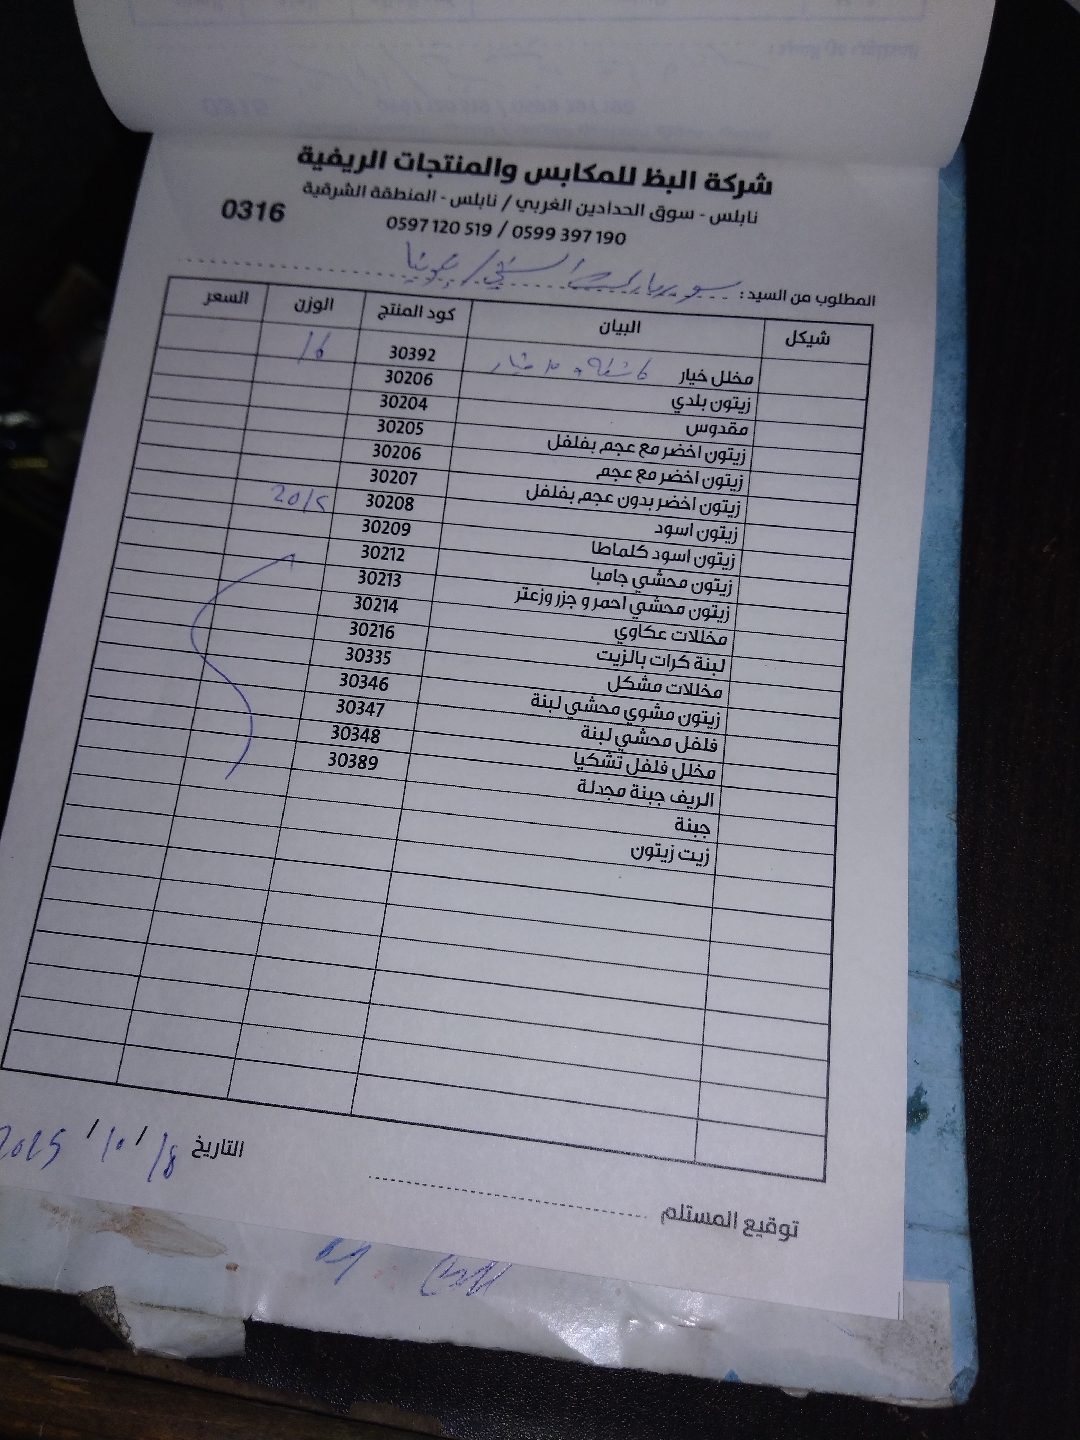 شركة البظ للمكابس والمنتجات الريفية
نابلس - سوق الحدادين الغربي / نابلس - المنطقة الشرقية
0316
0597 120 519 / 0599 397 190
المطلوب من السيد: سوبرماركت
شيكل البيان كود المنتج الوزن السعر
مخلل خيار 30392 16
زيتون بلدي 30206
مقدوس 30204
زيتون اخضر مع عجم بفلفل 30205
زيتون اخضر مع عجم 30206
زيتون اخضر بدون عجم بفلفل 30207
زيتون اسود 30208
زيتون اسود كلماطا 30209
زيتون محشي جامبا 30212
زيتون محشي احمر و جزر وزعتر 30213
مخللات عكاوي 30214
لبنة كرات بالزيت 30216
مخللات مشكل 30335
زيتون مشوي محشي لبنة 30346
فلفل محشي لبنة 30347
مخلل فلفل تشكيا 30348
الريف جبنة مجدلة 30389
جبنة
زيت زيتون
التاريخ 8/ 10 / 2025
توقيع المستلم